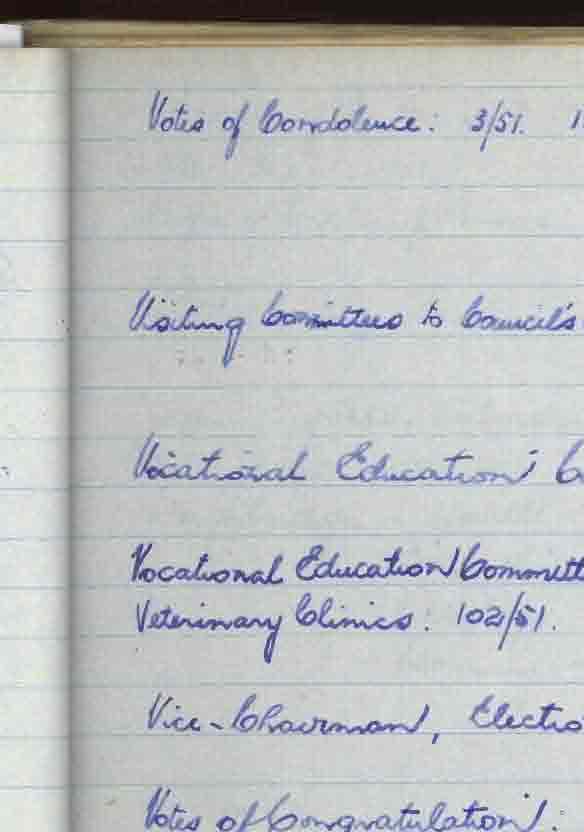 Votes of Condolence: 3/51. 1
Visiting Committees to Council's
Vocational Education C
Vocational Education Committ
Veterinary Clinics: 102/51.
Vice-Chairman, Electio
Votes of Congratulation: